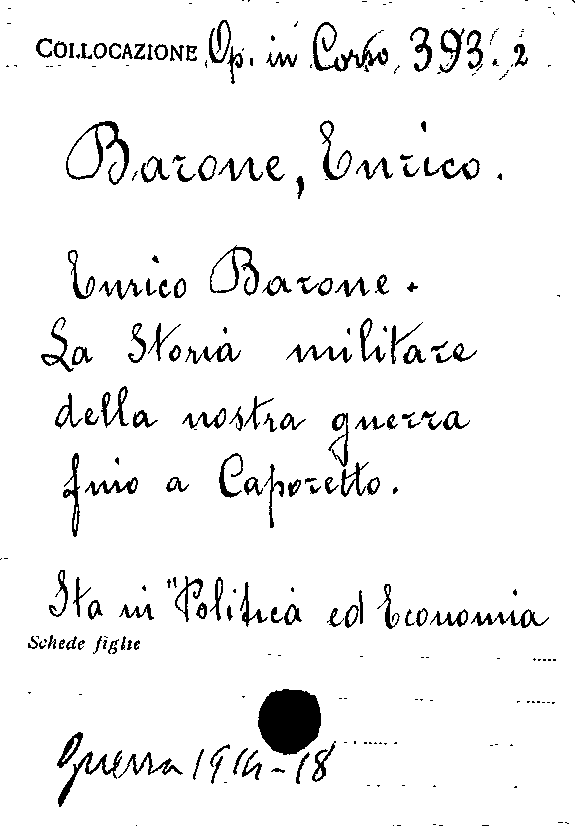 COLLOCAZIONE Op. in Corso 393.2
Barone, Enrico.
Enrico Barone.
La Storia militare
della nostra guerra
fino a Caporetto.
Sta in "Politica ed Economia
Schede figlie
Guerra 1914-18